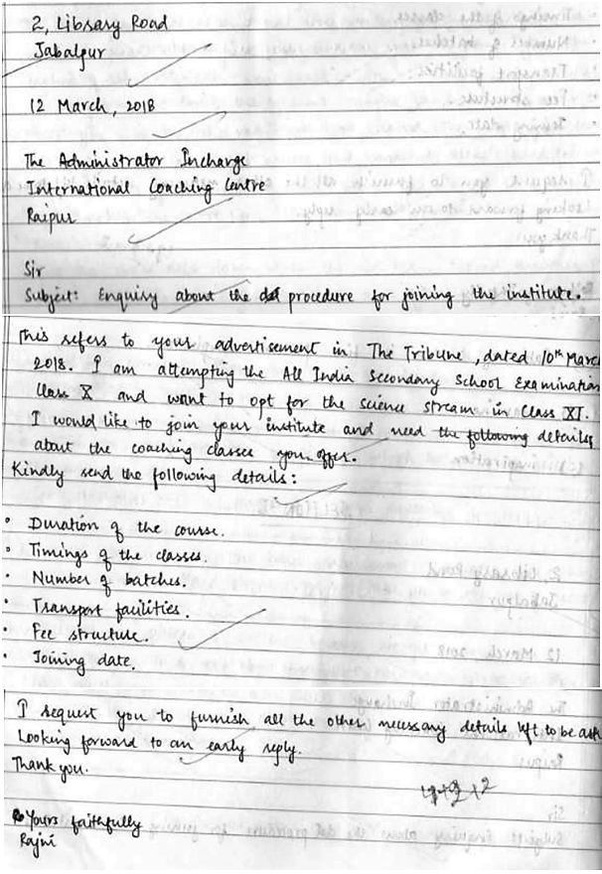 2, Library Road
Jabalpur
12 March, 2018
The Administrator Incharge
International Coaching Centre
Raipur
Sir
Subject: Enquiry about the procedure for joining the institute.
This refers to your advertisement in The Tribune, dated 10th March
2018. I am attempting the All India Secondary School Examination
Class X and want to opt for the science stream in Class XI.
I would like to join your institute and need the following details
about the coaching classes you offer.
Kindly send the following details:
• Duration of the course.
• Timings of the classes.
• Number of batches.
• Transport facilities.
• Fee structure.
• Joining date.
I request you to furnish all the other necessary details left to be ask
Looking forward to an early reply.
Thank you.
Yours faithfully
Rajni